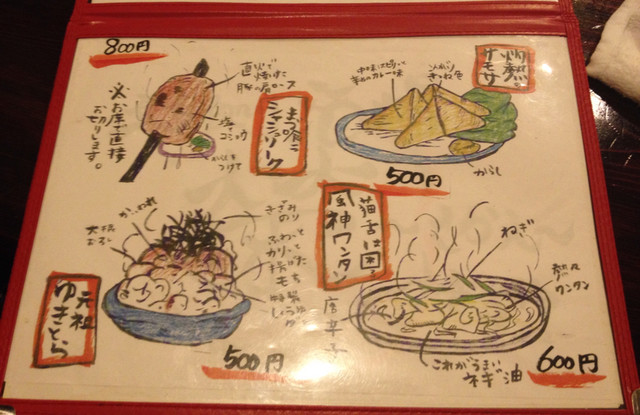 800円
直火で
焼いた
豚の肩ロース
※お席で直接
お切りします。
塩で
コショウ
からしを
つけて
まっ赤
シャシューク
中はスパイシー
羊のカレー味
こんがり
きつね色
サモサ
からし
500円
かつお
大根
おろし
きざみ
のり
ふわっと
カリッと
揚げた
もち
特製
しょうゆ
元祖
ゆきとら
500円
猫舌は困る
風神ワンタン
唐辛子
ねぎ
熱々
ワンタン
これがうまい
ネギ油
600円